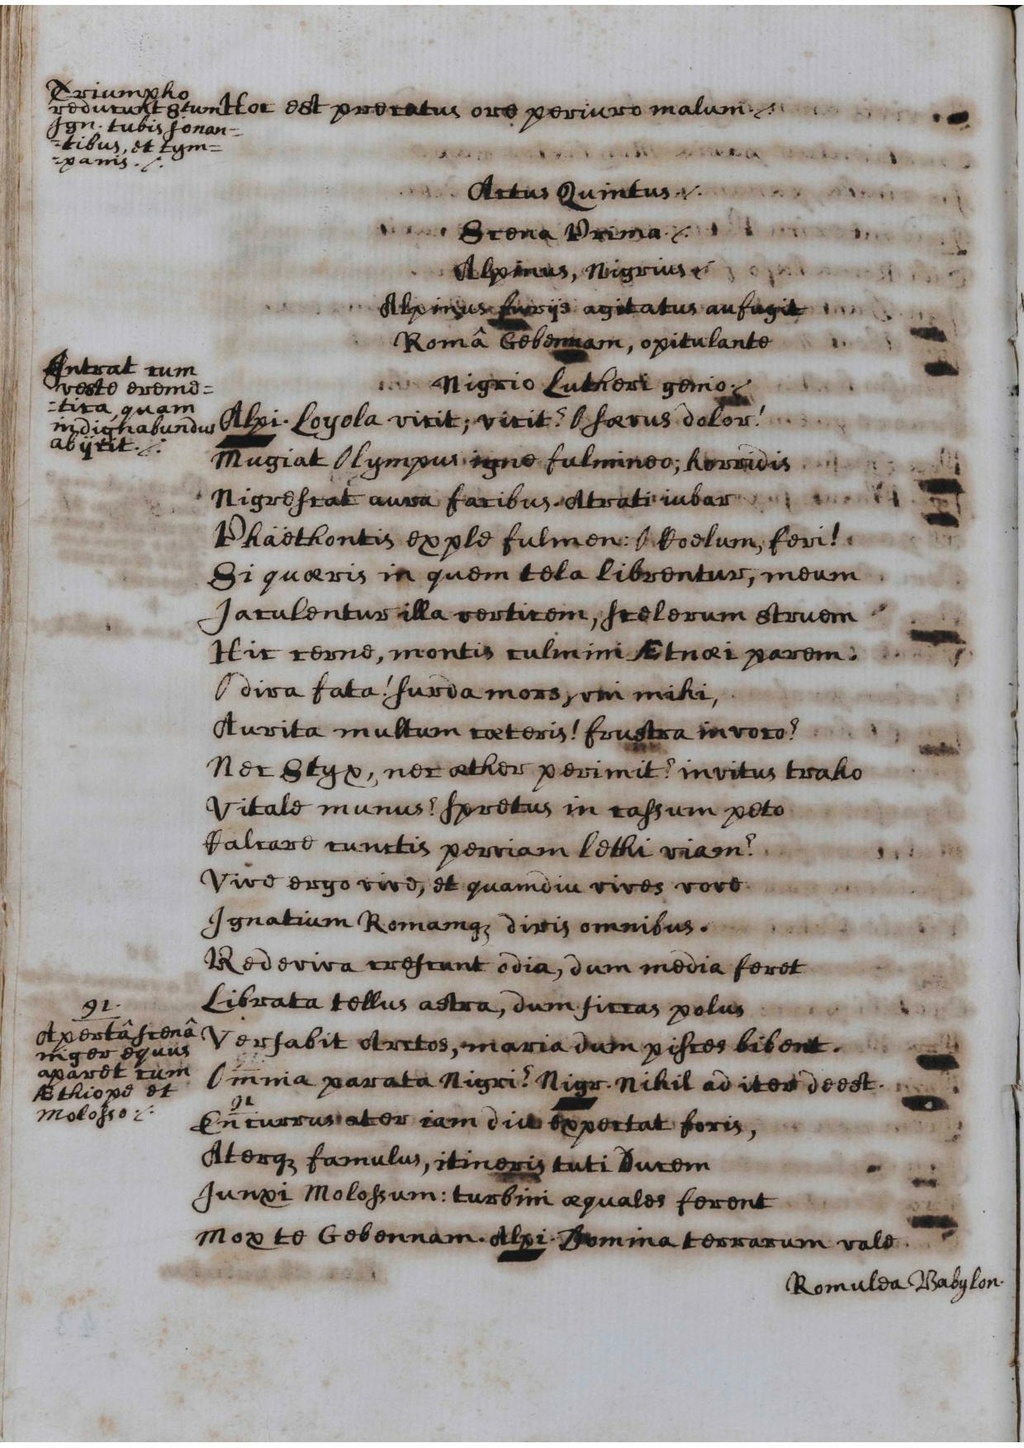 Triumpho
reducunt Stum
Ign. tubis sonan=
=tibus, et tym=
=panis.
Hoc est precatus ore periuro malum.
Actus Quintus.
Scena Prima.
Alpinus, Nigrius
Alpinus furijs agitatus aufugit
Româ Gebennam, opitulante
Nigrio Lutheri genio.
Intrat cum
veste eremi=
=tica, quam
indignabundus
abijcit.
Alpi. Loyola vicit; vicit? O saevus dolor!
Mugiat Olympus igne fulmineo; horridis
Nigrescat aura facibus. Atrati iubar
Phaëthontis exple fulmen: O Coelum, feri!
Si quaeris in quem tela librentur, meum
Jaculentur illa verticem, scelerum struem
Hic cerne, montis culmini Ætnaei parem.
O dira fata! surda mors, uni mihi,
Aurita multum caeteris! frustra invoco?
Nec Styx, nec aether perimit? invitus traho
Vitale munus? spretus in cassum peto
Calcare cunctis perviam lethi viam?
Vive ergo vive, et quamdiu vives vove
Ignatium Romamq; diris omnibus.
Rediviva crescunt odia, dum media feret
Librata tellus astra, dum siccas polus
91.
Apertâ scenâ
niger equus
aparet cum
Æthiope et
Molosso.
Versabit Arctos, maria dum pisces bibent.
Omnia parata Nigri? Nigr. Nihil ad iter deest.
91
En currus ater iam diu expectat foris,
Aterq; famulus, itineris tuti Ducem
Junxi Molossum: turbini aequales ferent
Mox te Gebennam. Alpi. Domina terrarum vale
Romulea Babylon.